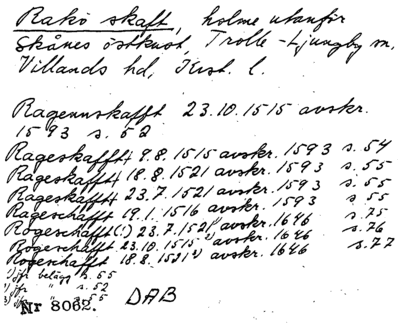 Rakö skaft, holme utanför
Skånes östkust, Trolle-Ljungby sn,
Villands hd, Krist. l.
Ragennskafft 23.10.1515 avskr.
1593 s. 52
Rageskafft 9.8.1515 avskr. 1593 s. 54
Rageskafft 18.8.1521 avskr. 1593 s. 55
Rageskafft 23.7.1521 avskr. 1593 s. 55
Rageschafft 19.1.1516 avskr. 1593 s. 55
Rogeschafft(!) 23.7.1521¹⁾ avskr. 1646 s. 75
Rogeschafft 23.10.1515²⁾ avskr. 1646 s. 76
Rogeschafft 18.8.1521³⁾ avskr. 1646 s. 77
1) jfr belägg s. 55
2) jfr " s. 52
3) jfr " s. 55
Nr 8062. DAB